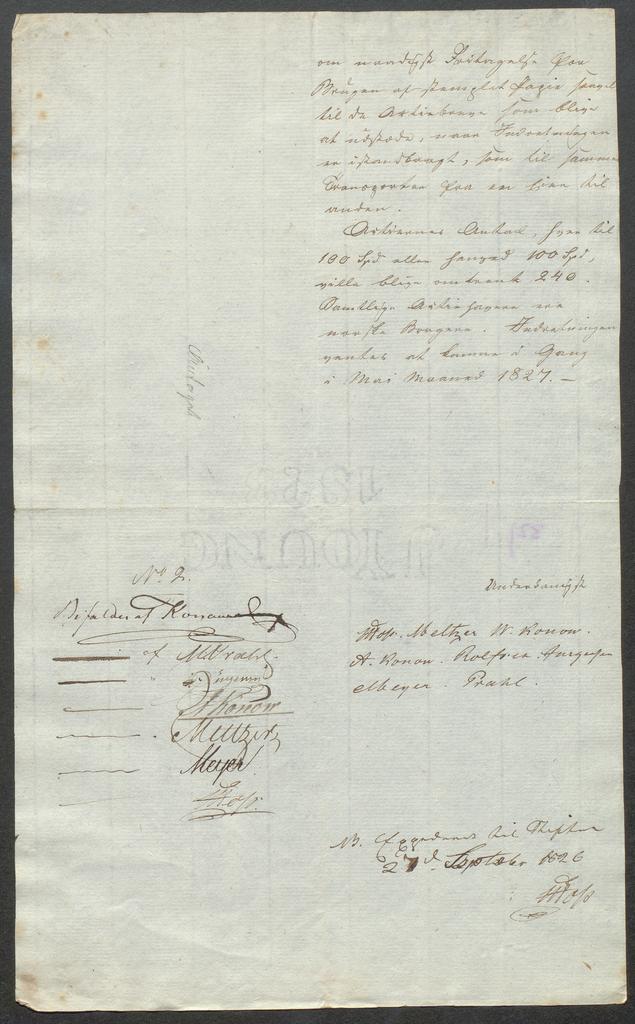 om naadigst Fritagelse for
Brugen af stemplet Papir saavel
til de Actiebreve som blive
at udstæde, naar Indretningen
er istandbragt, som til samme
Transporter fra en Eier til
anden.
Actiernes Antal, hver til
100 Spd eller høiest 100 Spd,
ville blive omtrent 240.
Samtlige Actiehavere ere
norske Borgere. Indretningen
ventes at komme i Gang
i Mai Maaned 1827. —
No 2.
Bifaldes af Konow
— af M Prahl.
— " Jürgensen
— A Konow
— Meltzer
— Meyer
— Foss.
Underdanigst
Foss. Meltzer W. Konow.
A. Konow. Rolfsen Jürgensen
Meyer. Prahl.
NB. Expederet til Stiftet
27d Septebr 1826
Foss